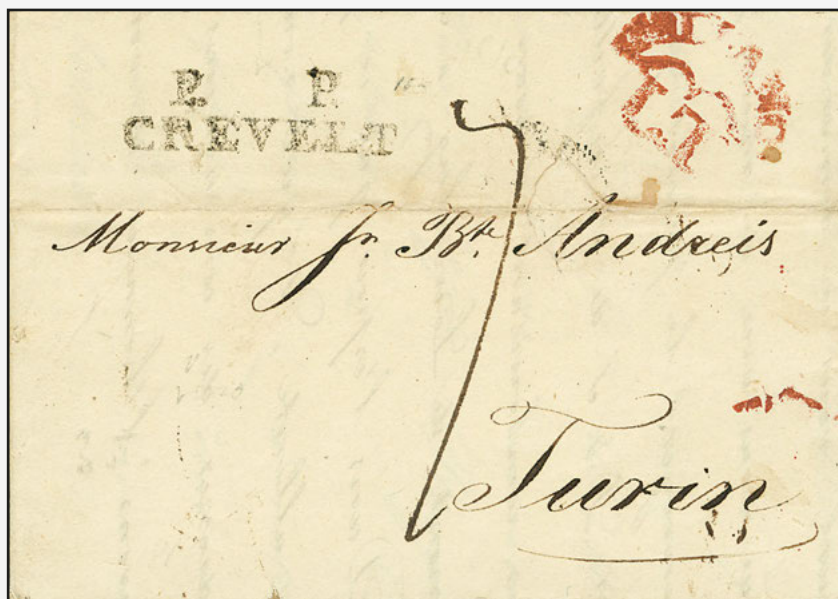 P. P.
CREVELT
7
Monsieur Jn. Bte. Andreis
Turin